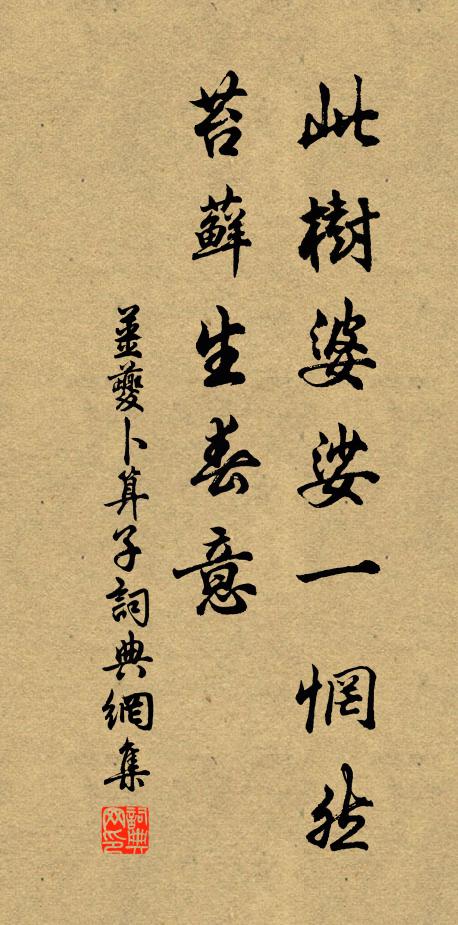 此樹婆娑一惘然
苔蘚生春意
姜夔卜算子詞典網集
詞典网印